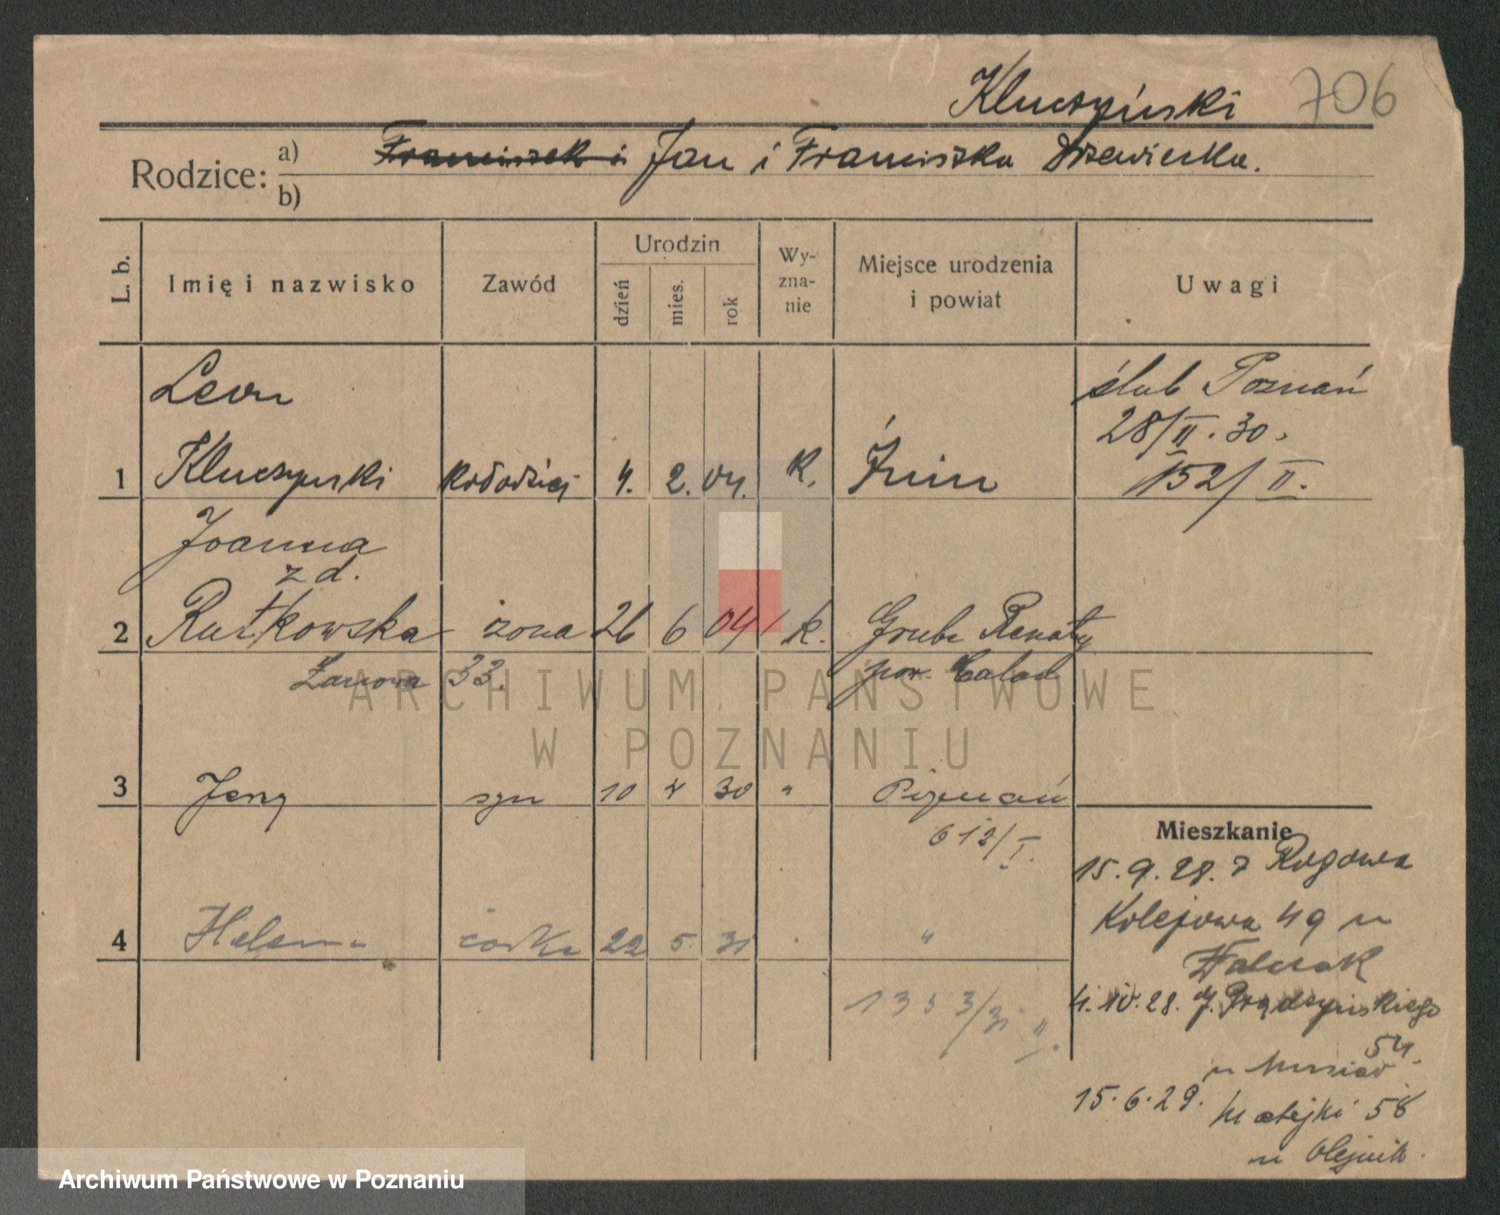 Kluczyński 706
Rodzice: a) Franciszek i Jan i Franciszka Drzewiecka.
b)
L. b. Imię i nazwisko Zawód Urodzin dzień mies. rok Wy-zna-nie Miejsce urodzenia i powiat Uwagi
Leon ślub Poznań
28/II.30.
1 Kluczyński kołodziej 4. 2. 04. K. Żnin 152/II.
Joanna
z d.
2 Rutkowska żona 26 6 04 k. Grube
33. pow.
3 Jerzy syn 10 4 30 " Poznań
612/I.
4 Helena córka 22 5 31 "
1353/31 II.
Mieszkanie
15.9.28. z Rogowa
Kolejowa 49 u
Walczak
4.10.28. Prądzyńskiego
54.
u
15.6.29. Matejki 58
u Olejnik.
ARCHIWUM PAŃSTWOWE
W POZNANIU
Archiwum Państwowe w Poznaniu